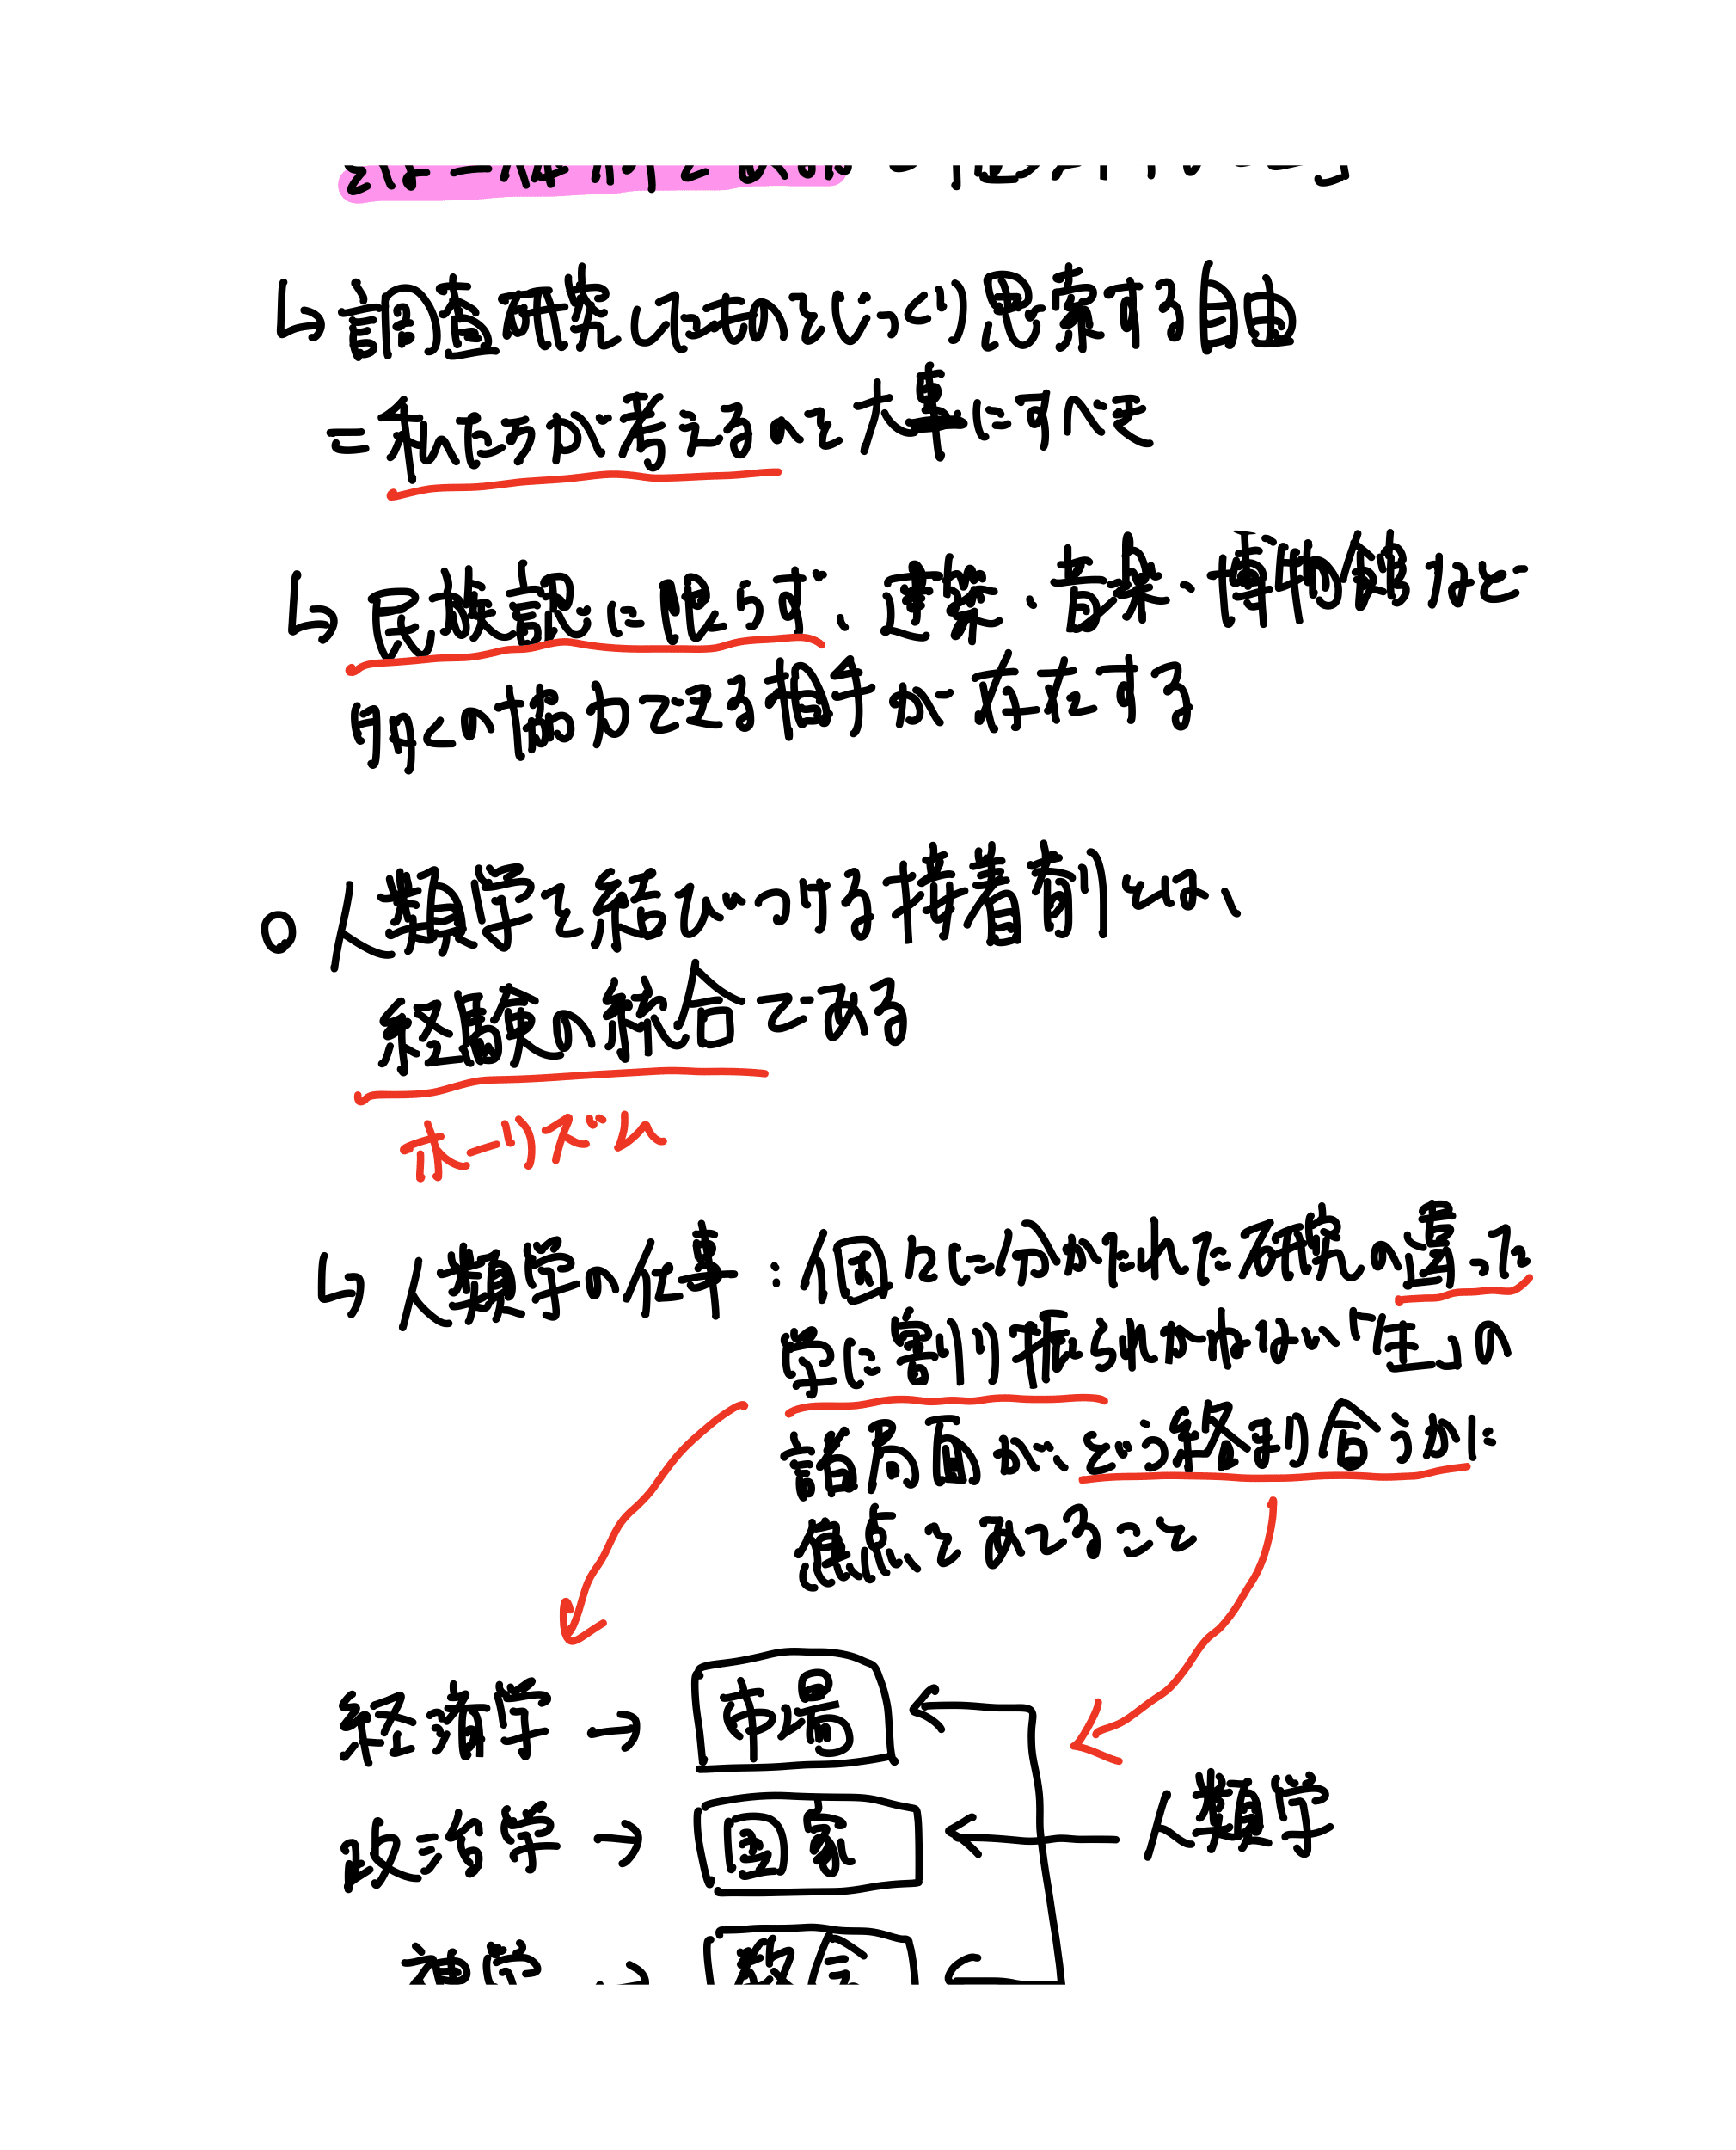 ↳ 調査研究したものをじっくり思索する自由
= 私たちが考えるのを大事にすべき
↳ 民族誌に限らず、建築・音楽・博物館など
明くの協力できる相手が存在する
○ 人類学を結いつける接着剤とは、
経験の統合である
ホーリズム
↳ 人類学の仕事：個々に分かれた研究の置った
筐に割り振られかねない「生」の
諸局面が、どう絡まり合うかに
焦点をあてること
経済学 → 市場
政治学 → 国家
人類学
神学 → 教会